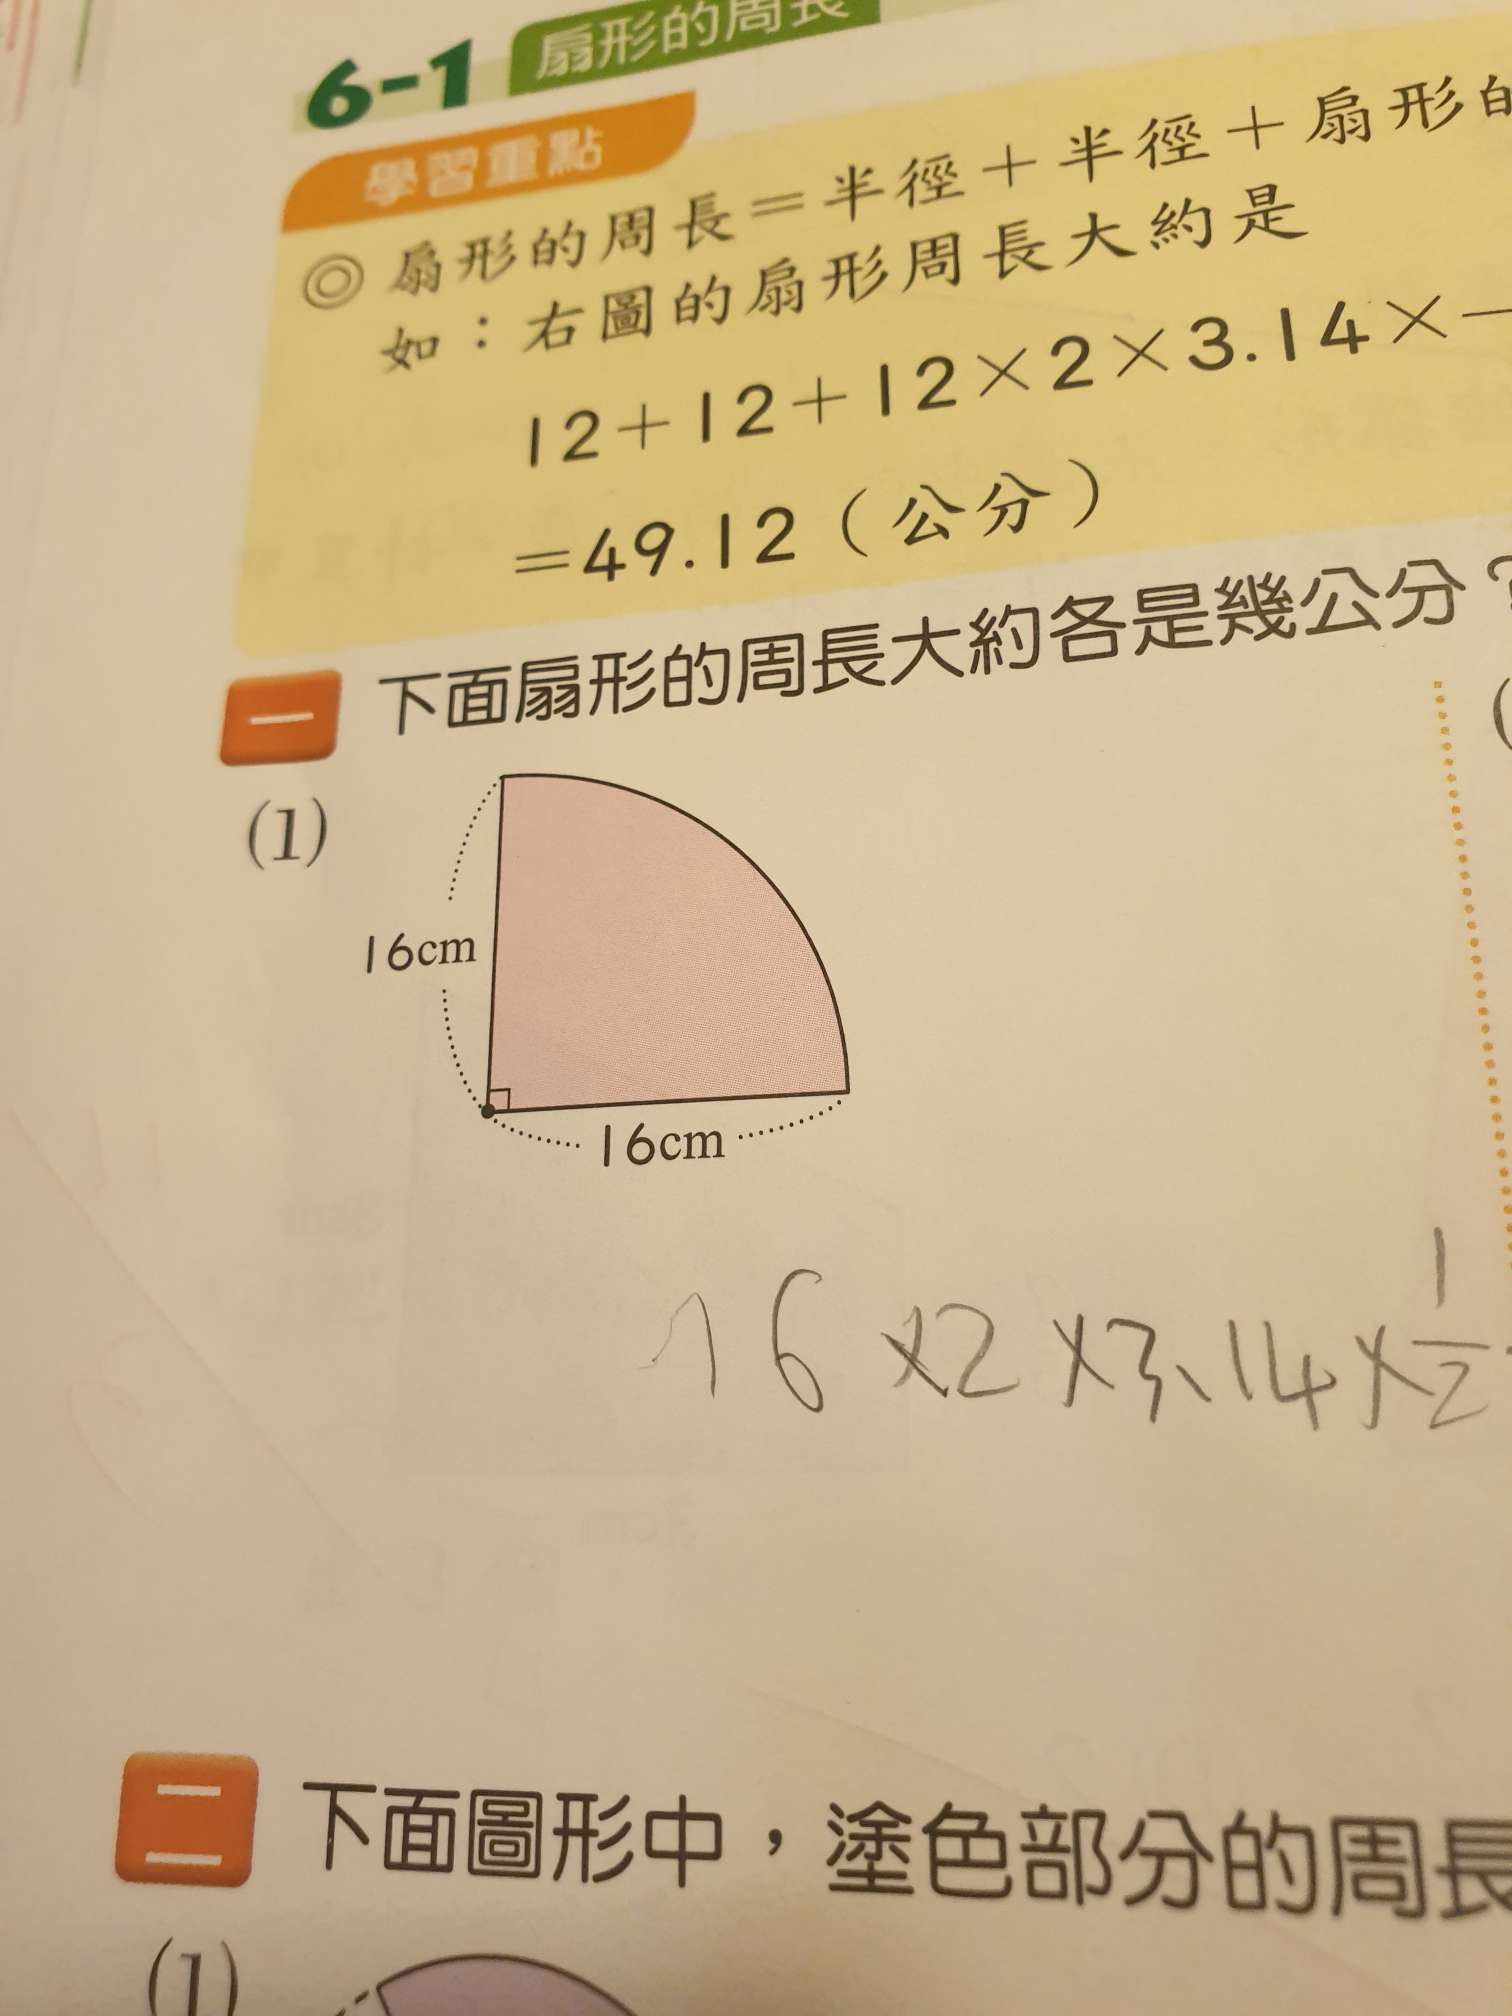 6-1 扇形的周長
學習重點
◎扇形的周長=半徑+半徑+扇形的
如:右圖的扇形周長大約是
12+12+12×2×3.14×
=49.12(公分)
一 下面扇形的周長大約各是幾公分?
(1)
16cm
16cm
16×2×3.14×1/2
二 下面圖形中,塗色部分的周長
(1)